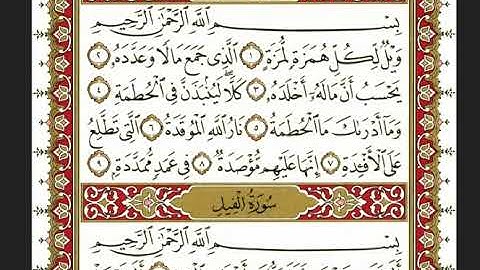 بِسْمِ اللَّهِ الرَّحْمَٰنِ الرَّحِيمِ
وَيْلٌ لِّكُلِّ هُمَزَةٍ لُّمَزَةٍ ١ الَّذِي جَمَعَ مَالًا وَعَدَّدَهُۥ ٢
يَحْسَبُ أَنَّ مَالَهُۥٓ أَخْلَدَهُۥ ٣ كَلَّا ۖ لَيُنۢبَذَنَّ فِي الْحُطَمَةِ ٤
وَمَآ أَدْرَىٰكَ مَا الْحُطَمَةُ ٥ نَارُ اللَّهِ الْمُوقَدَةُ ٦ الَّتِي تَطَّلِعُ
عَلَى الْأَفْـِٔدَةِ ٧ إِنَّهَا عَلَيْهِم مُّؤْصَدَةٌ ٨ فِي عَمَدٍ مُّمَدَّدَةٍۭ ٩
سُورَةُ الْفِيلِ
بِسْمِ اللَّهِ الرَّحْمَٰنِ الرَّحِيمِ